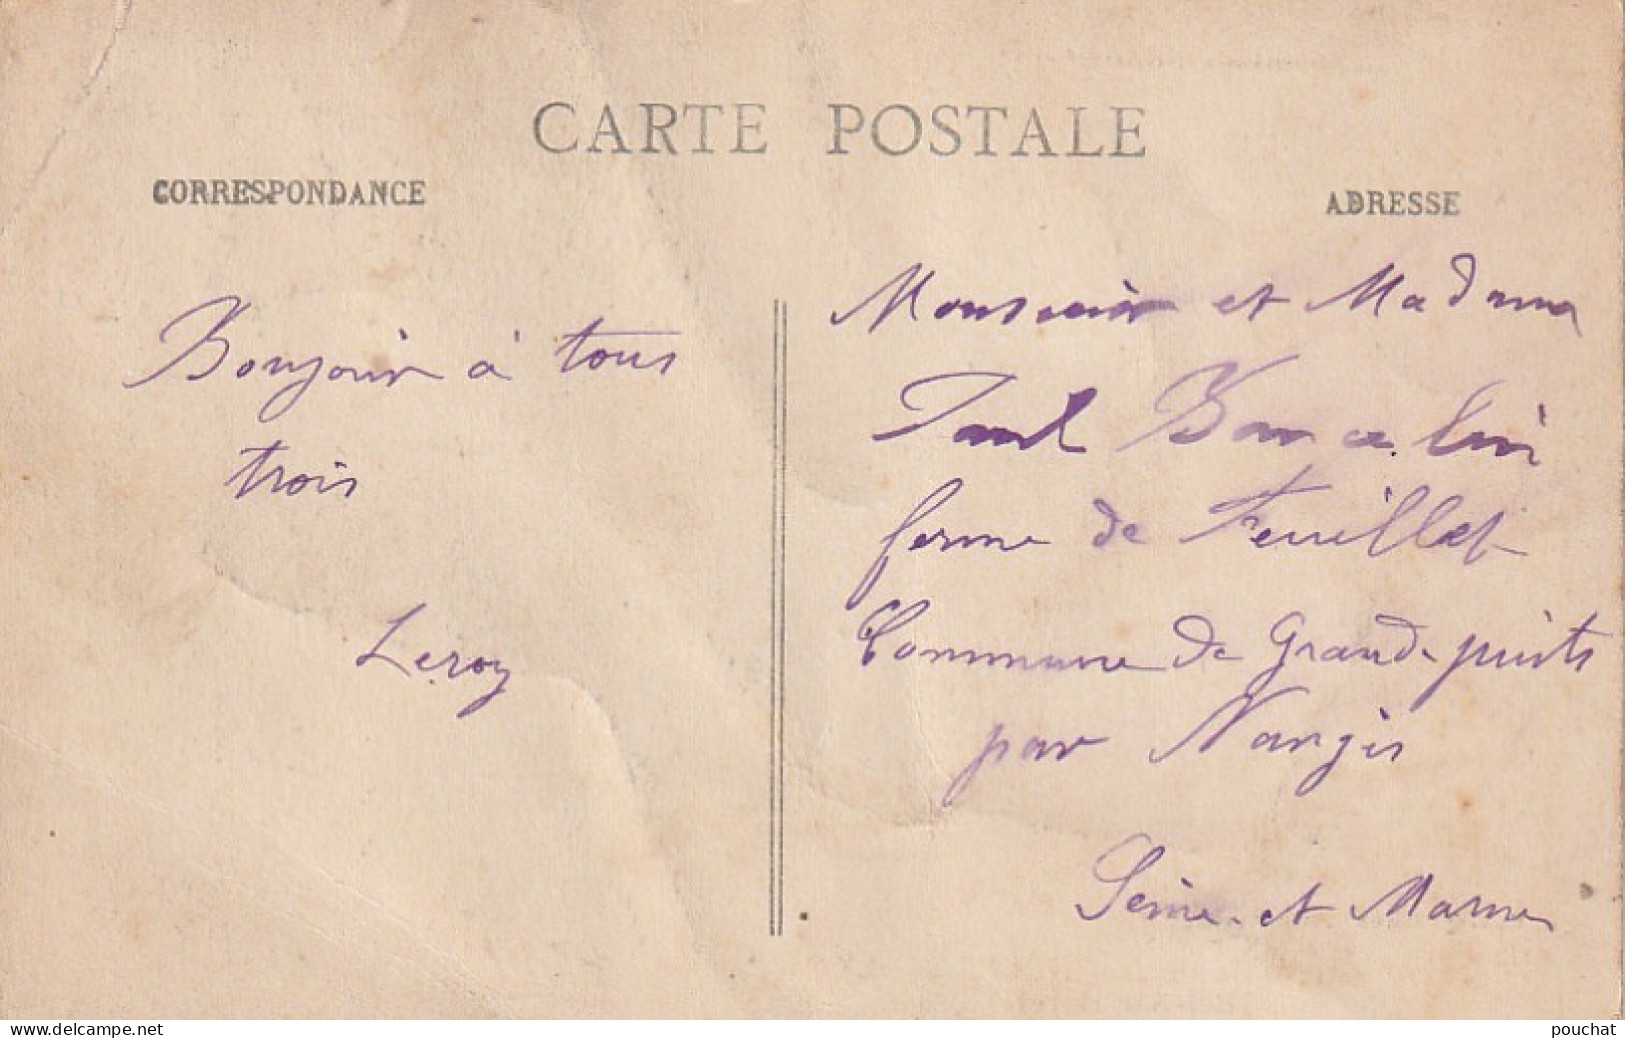 CARTE POSTALE
CORRESPONDANCE
ADRESSE
Bonjour à tous
trois
Leroy
Monsieur et Madame
Paul
ferme de Feuillet
Commune de Grand-puits
par Nangis
Seine-et Marne
www.delcampe.net
pouchat